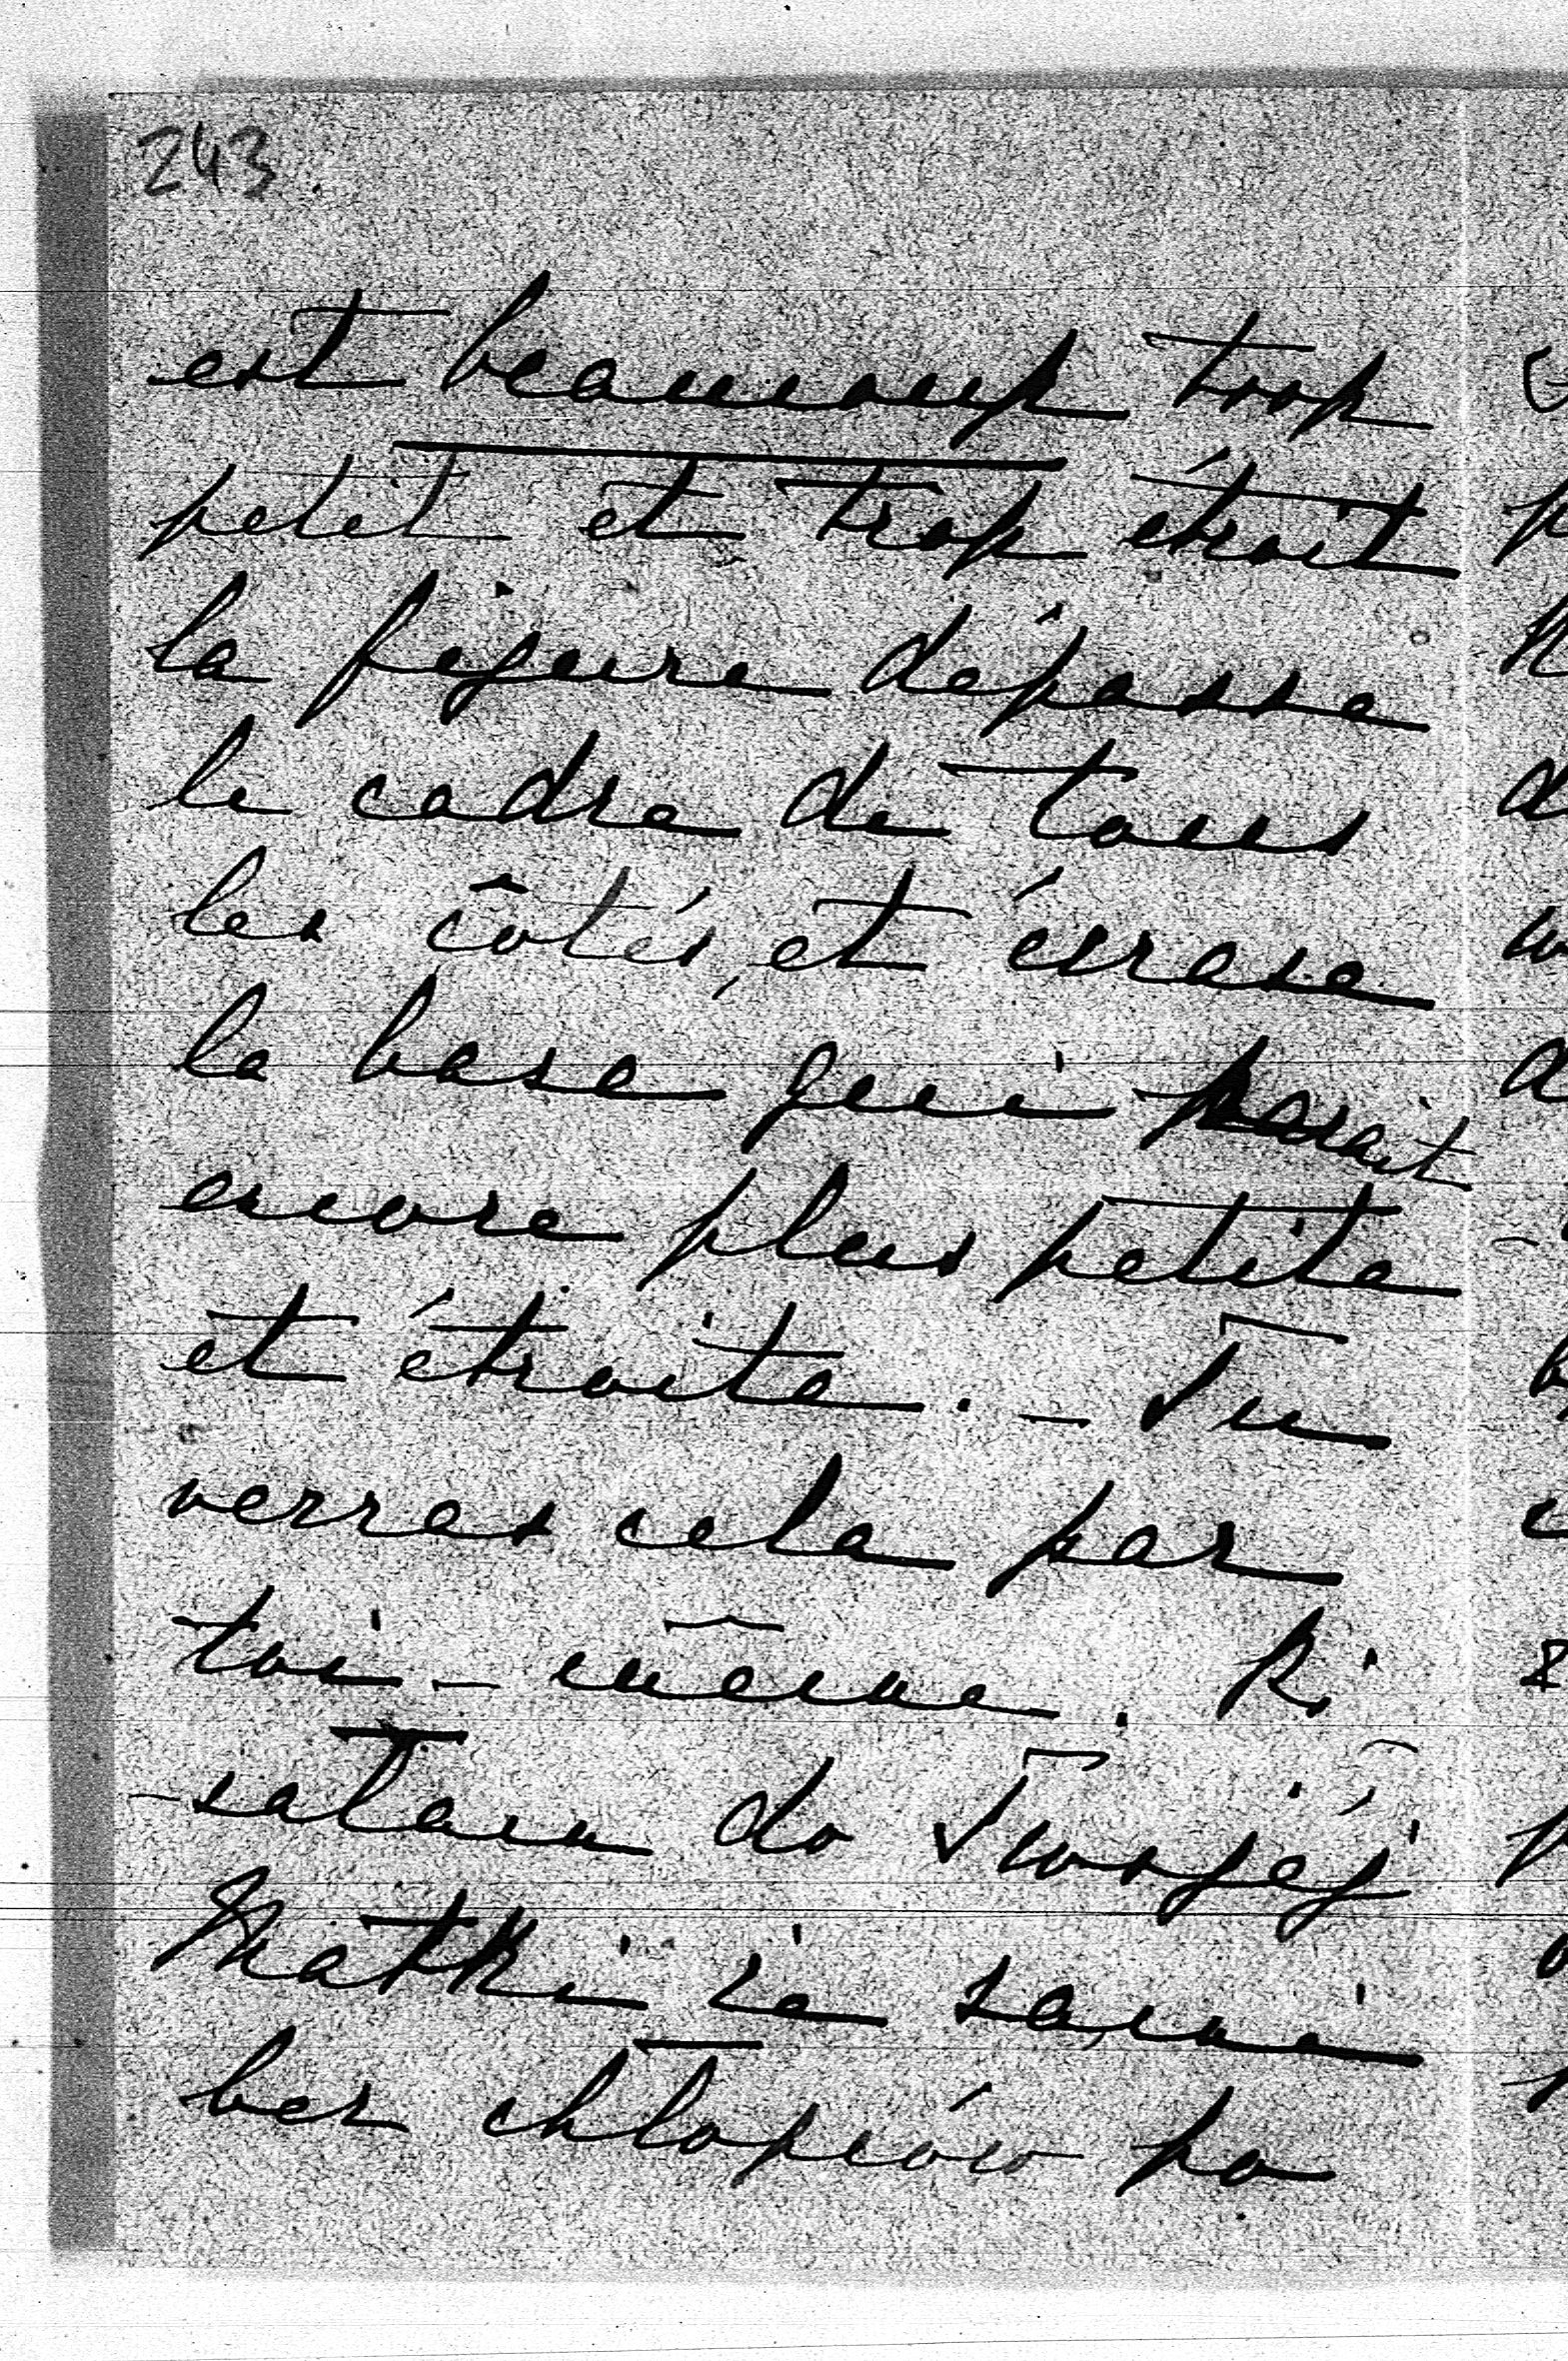 243.
est beaucoup trop
petit et trop étroit
la figure dépasse
le cadre de tous
les côtés, et écrase
la base qui parait
encore plus petite
et étroite. – Tu
verras cela par
toi-même.
do Twojéj
Matki
bez chłopców po